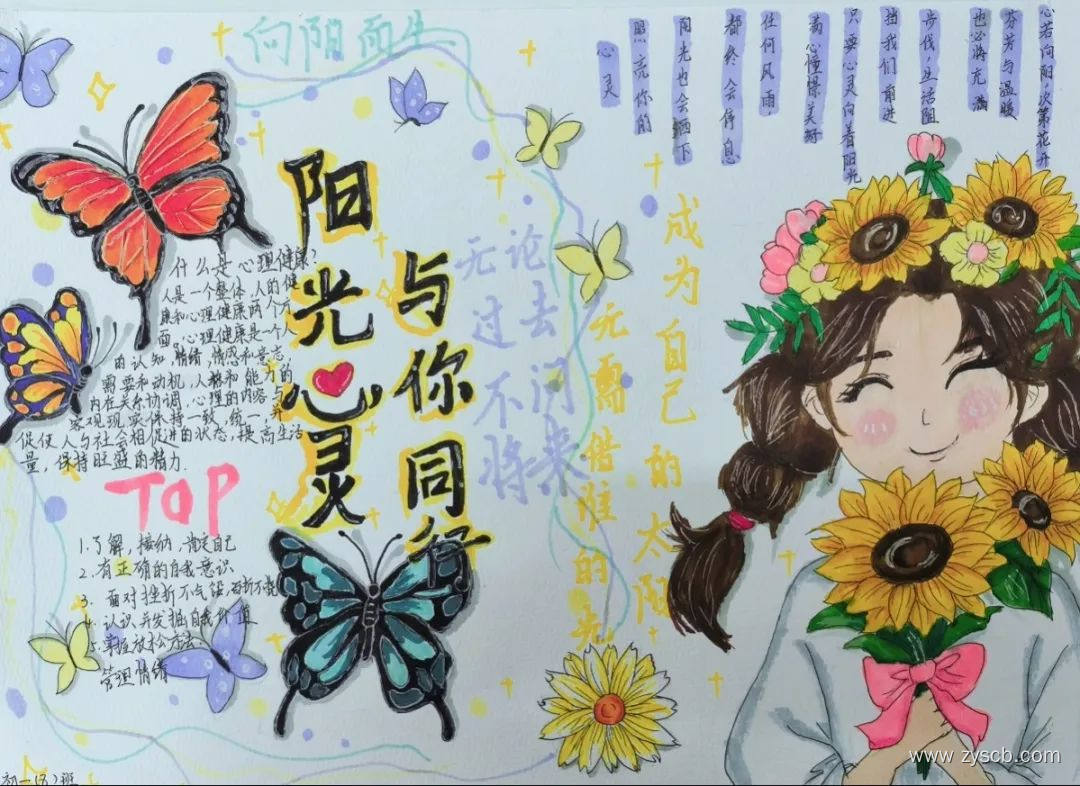 向阳而生
阳光心灵
与你同行
什么是心理健康?
人是一个整体,人的健
康和心理健康两个方
面,心理健康是一个人
的认知,情绪,情感和意志,
需要和动机,人格和能力的
内在关系协调,心理的内容与
客观现实保持一致,统一,并
促使人与社会相促进的状态,提高生活
量,保持旺盛的精力.
TOP
1.了解,接纳,肯定自己
2.有正确的自我意识
3.面对挫折不气馁,百折不挠
4.认识并发掘自我价值
5.掌握放松方法.
管理情绪
无论过去
不问将来
成为自己的太阳
无需借谁的光
心若向阳,次第花开
芬芳与温暖
也必将充满
步伐,生活阻
挡我们前进
只要心灵向着阳光
满心憧憬美好
任何风雨,
都终会停息
阳光也会洒下
照亮你的
心灵
初一(8)班
www.zyscb.com